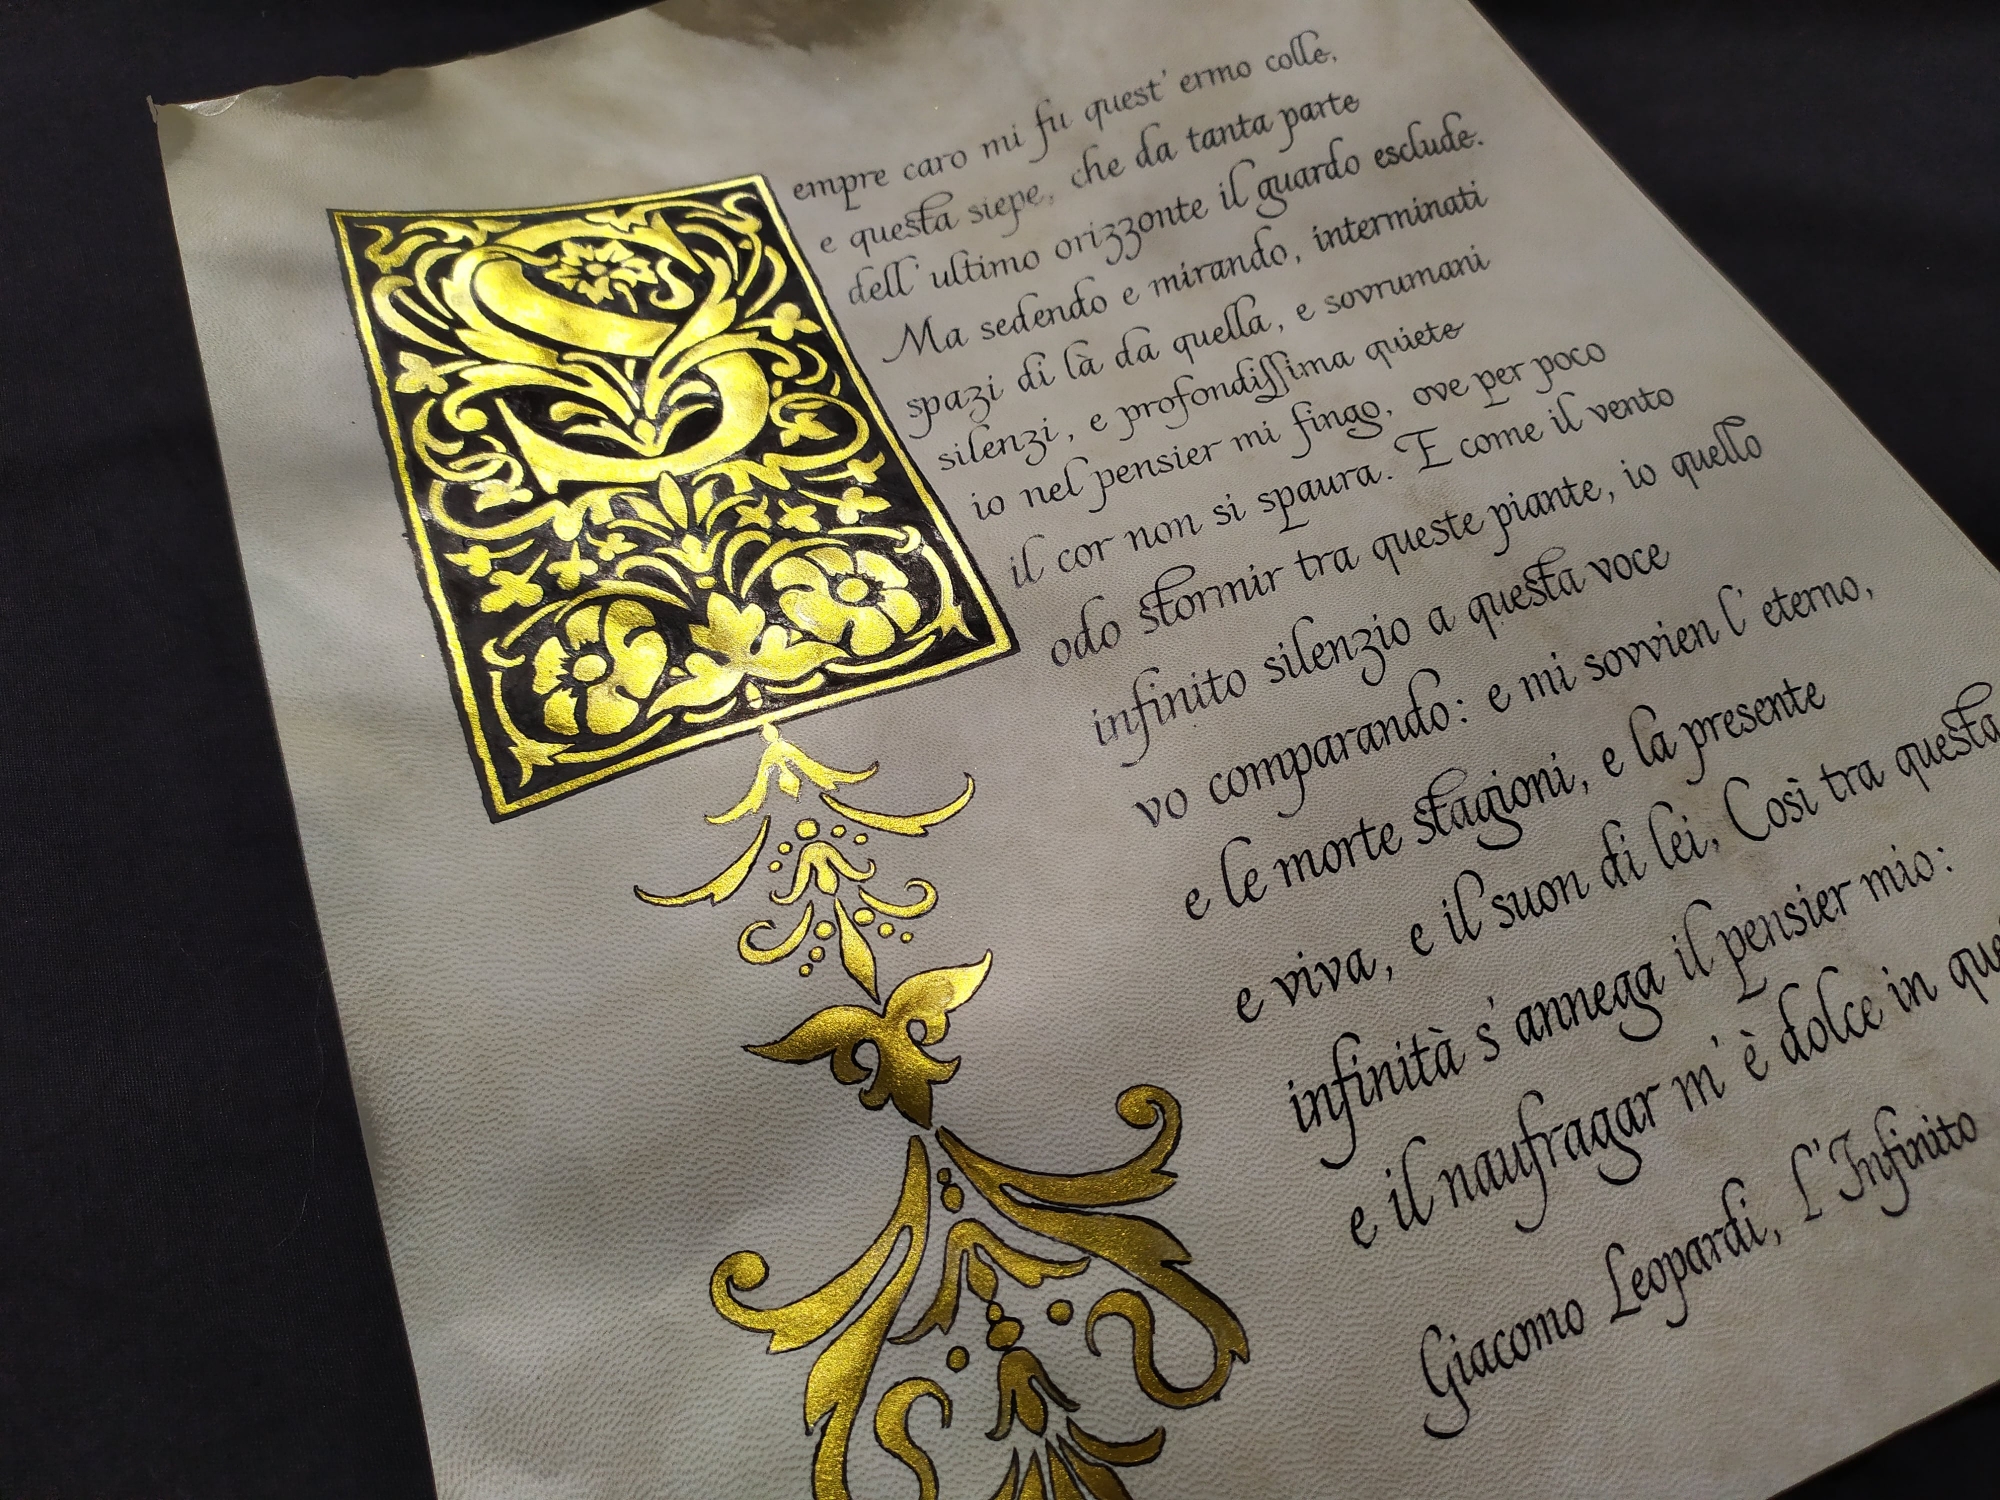 Sempre caro mi fu quest' ermo colle,
e questa siepe, che da tanta parte
dell' ultimo orizzonte il guardo esclude.
Ma sedendo e mirando, interminati
spazi di là da quella, e sovrumani
silenzi, e profondissima quiete
io nel pensier mi fingo, ove per poco
il cor non si spaura. E come il vento
odo stormir tra queste piante, io quello
infinito silenzio a questa voce
vo comparando: e mi sovvien l' eterno,
e le morte stagioni, e la presente
e viva, e il suon di lei, Così tra questa
infinità s' annega il pensier mio:
e il naufragar m' è dolce in
Giacomo Leopardi, L' Infinito